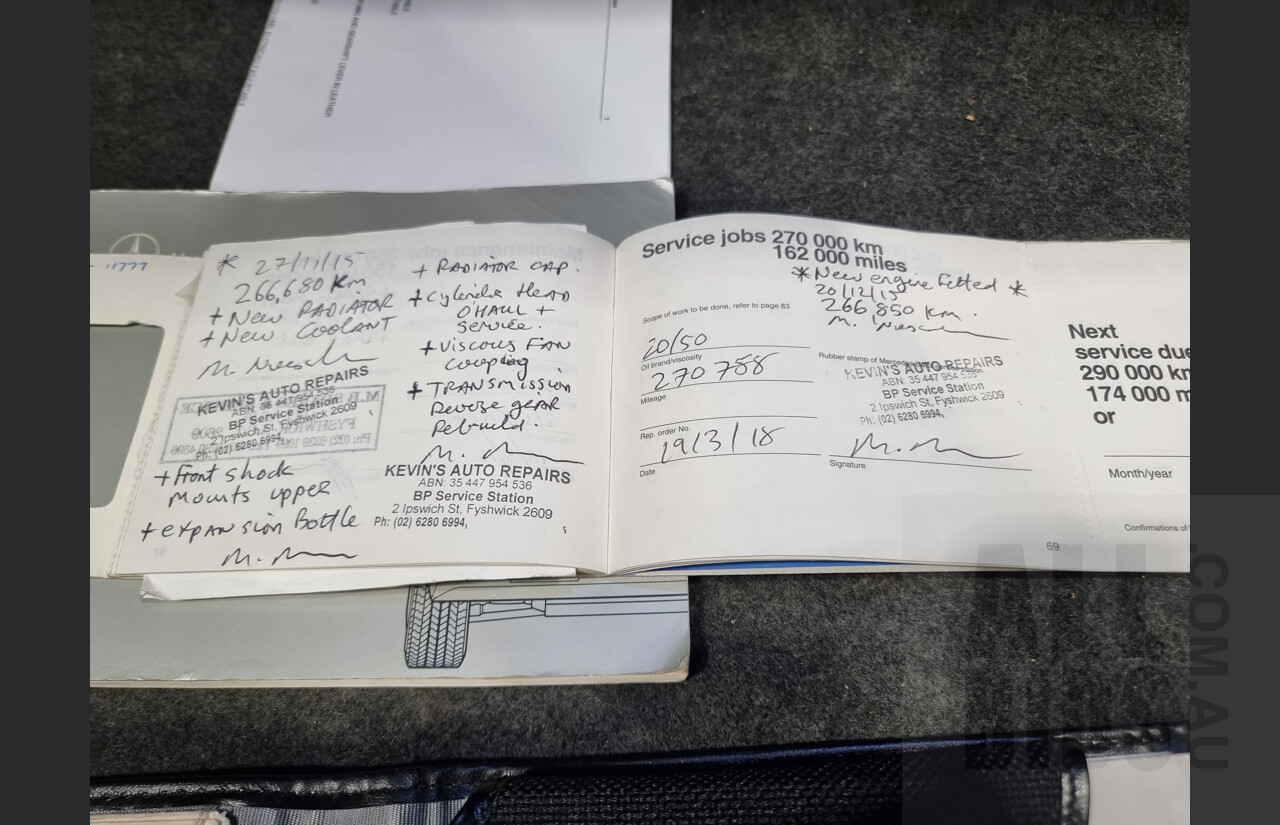 * 27/11/15
266,680 Km
+ New RADIATOR
+ New COOLANT
KEVIN'S AUTO REPAIRS
ABN: 35 447 954 536
BP Service Station
2 Ipswich St, Fyshwick 2609
Ph: (02) 6280 6994,
+ front shock
Mounts upper
+ expansion Bottle
+ RADIATOR CAP.
+ Cylinder Head
O'HAUL +
Service.
+ Viscous FAN
+ TRANSMISSION
Reverse gear
Rebuild.
KEVIN'S AUTO REPAIRS
ABN: 35 447 954 536
BP Service Station
2 Ipswich St, Fyshwick 2609
Ph: (02) 6280 6994,
Service jobs 270 000 km
162 000 miles
* New engine fitted *
20/12/15
266 850 Km.
Scope of work to be done, refer to page 83
20/50
Oil brand/viscosity
270 788
Mileage
Rep. order No.
19/3/18
Date
Rubber stamp of
KEVIN'S AUTO REPAIRS
ABN: 35 447 954 536
BP Service Station
2 Ipswich St, Fyshwick 2609
Ph: (02) 6280 6994,
Signature
69
Next
service due
290 000 km
174 000 m
or
Month/year
Confirmations of
AND GEARSHIFT LEVER IN LEATHER
ALL
BIDS
.COM.AU